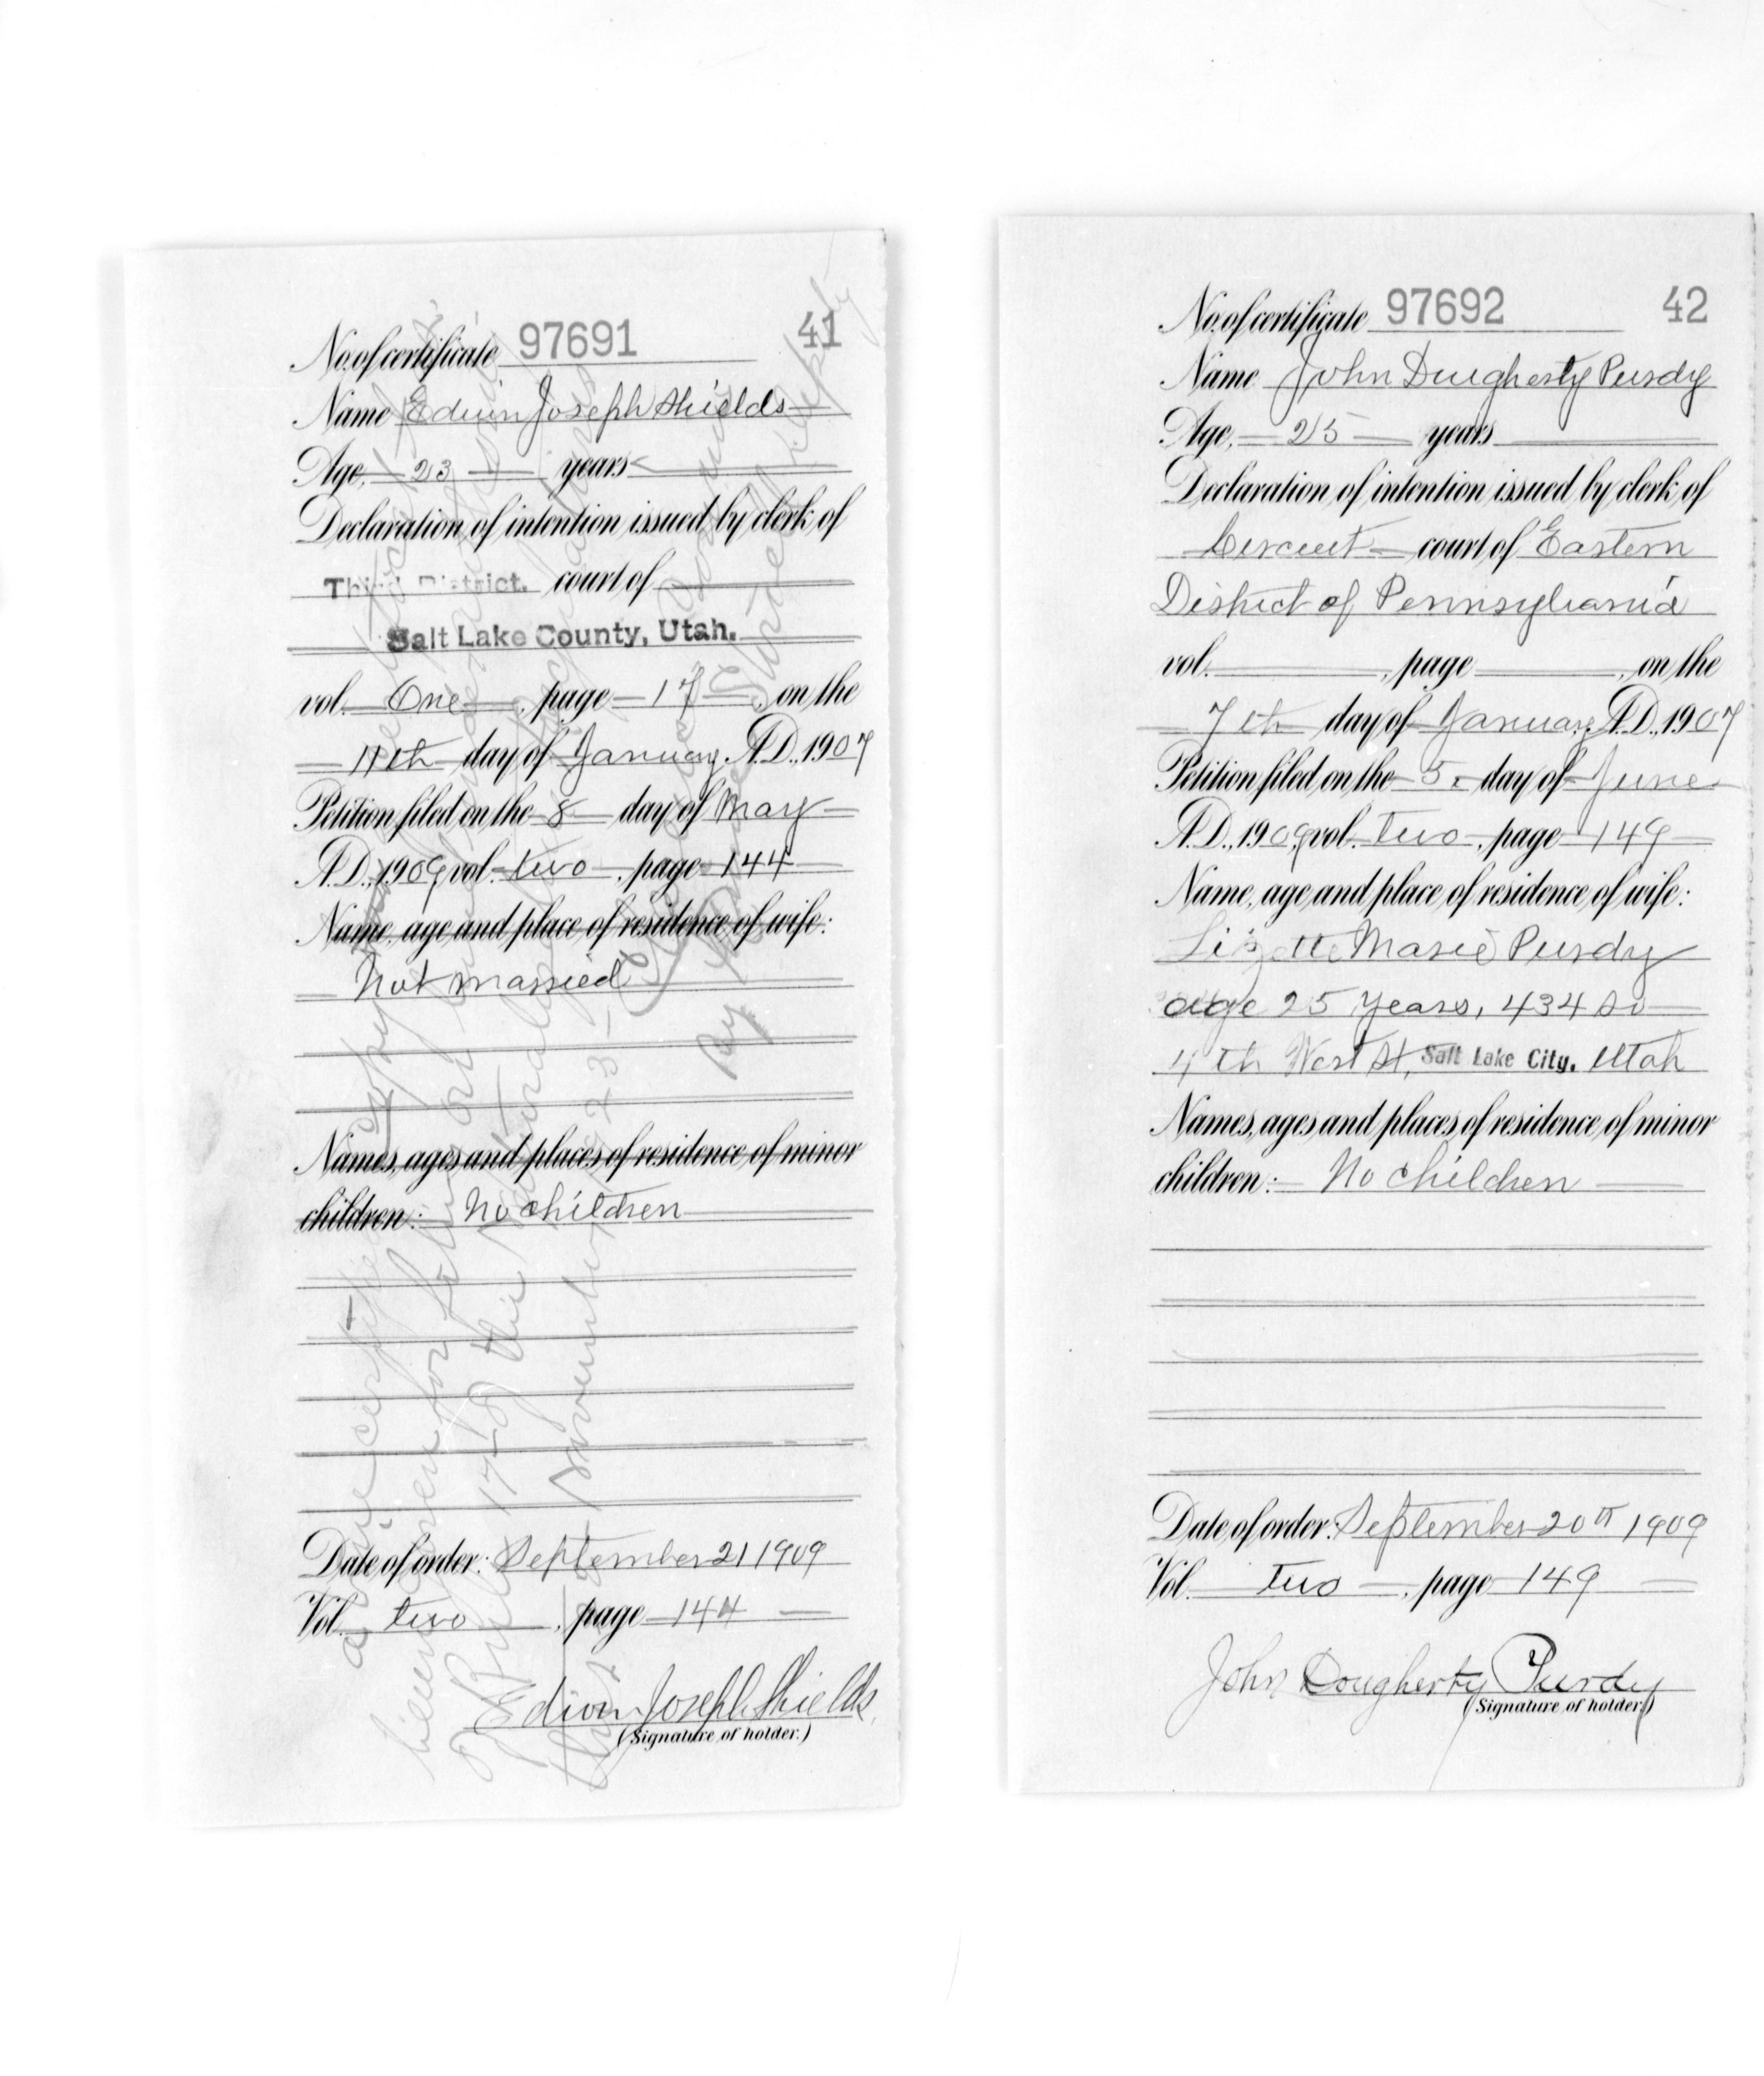 No. of certificate 97691 41
Name Edwin Joseph Shields
Age, 23 years
Declaration of intention issued by clerk of
Third District. court of
Salt Lake County, Utah.
vol. One, page 17, on the
11th day of January, A.D., 1907
Petition filed on the 8 day of May
A.D., 1909, vol. two, page 144
Name, age and place of residence of wife:
Not married
Names, ages and places of residence of minor
children: No children
Date of order: September 21 1909
Vol. two, page 144
Edwin Joseph Shields.
(Signature of holder.)
No. of certificate 97692 42
Name John Dougherty Purdy
Age, 25 years
Declaration of intention issued by clerk of
Circuit court of Eastern
District of Pennsylvania
vol. , page , on the
7th day of January, A.D., 1907
Petition filed on the 5. day of June
A.D., 1909, vol. two, page 149
Name, age and place of residence of wife:
Lizette Marie Purdy
age 25 Years, 434 So
4th West St, Salt Lake City. Utah
Names, ages and places of residence of minor
children: No children
Date of order: September 20th 1909
Vol. two, page 149
John Dougherty Purdy
(Signature of holder.)